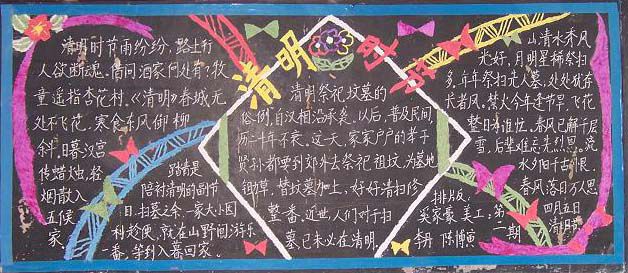 清明
清明时节雨纷纷，路上行
人欲断魂。借问酒家何处有？牧
童遥指杏花村。《清明》春城无
处不飞花，寒食东风御柳
斜，日暮汉宫
传蜡烛，轻
烟散入
五侯
家。
踏青是
陪衬清明的副节
目。扫墓之余，一家大小
利趁便，就在山野间游乐
一番，等到入暮回家。
清明祭祀坟墓的
俗例，自汉相沿承袭。以后，普及民间，
历二千年不衰。这一天，家家户户的孝子
贤孙都要到郊外去祭祀祖坟，为墓地
锄草，替坟墓加上，好好清扫修
整一番。近世，人们对于扫
墓，已未必在清明。
山清水秀风
光好，月明星稀祭扫
多。年年祭扫先人墓，处处犹存
长者风。焚火今年迟节早，飞花
整日有谁忙。春风已解千层
雪，后辈难忘先烈恩。
水夕阳千古恨，
春风落日万人思
四月五日
清明节
排版：
吴家豪 美工：第
李丹 陈博寅 一期